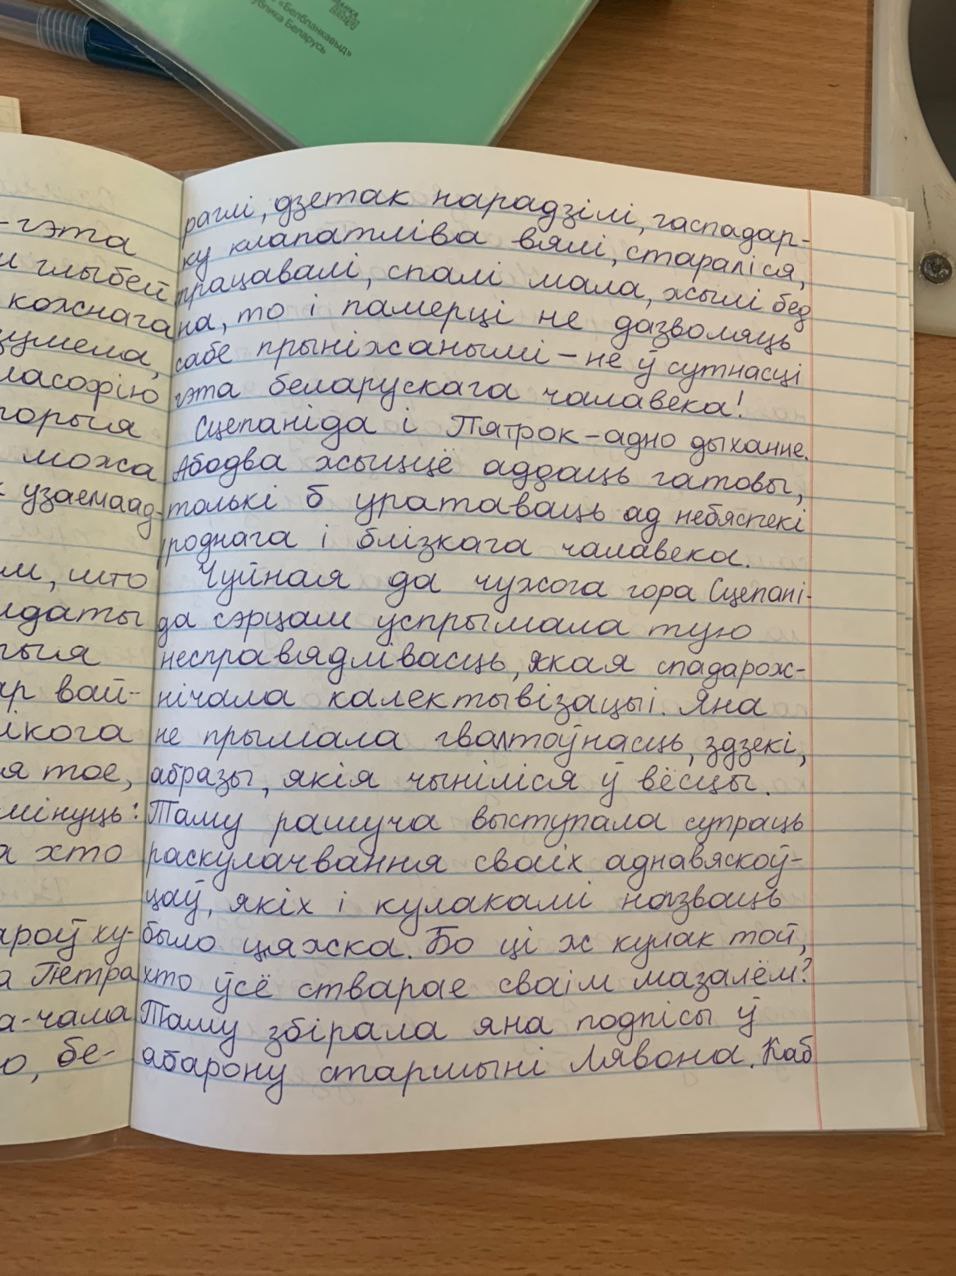 «Белбланкавыд»
публика Беларусь
-гэта
глыбей
кожнага
зумела,
ласофію
горыя
можа
узаемаад-
м, што
лдаты
рыя
ар вай-
лікога
я тое,
мінуць:
а хто
ароў ху-
а Пётра
а-чала
о, бе-
раглі, дзетак нарадзілі, гаспадар-
ку клапатліва вялі, стараліся,
працавалі, спалі мала, жылі бед
на, то і памерці не дазволяць
сабе прыніжанымі – не ў сутнасці
гэта беларускага чалавека!
Сцепаніда і Пятрок – адно дыханне.
Абодва жыццё аддаць гатовы,
толькі б уратаваць ад небяспекі
роднага і блізкага чалавека.
Чуйная да чужога гора Сцепані-
да сэрцам успрымала тую
несправядлівасць, якая спадарож-
нічала калектывізацыі. Яна
не прымала гвалтоўнасць, здзекі,
абразы, якія чыніліся ў вёсцы.
Таму рашуча выступала супраць
раскулачвання сваіх аднавяскоў-
цаў, якіх і кулакамі назваць
было цяжка. Бо ці ж кулак той,
хто ўсё стварае сваім мазалём?
Таму збірала яна подпісы ў
абарону старшыні Лявона. Каб